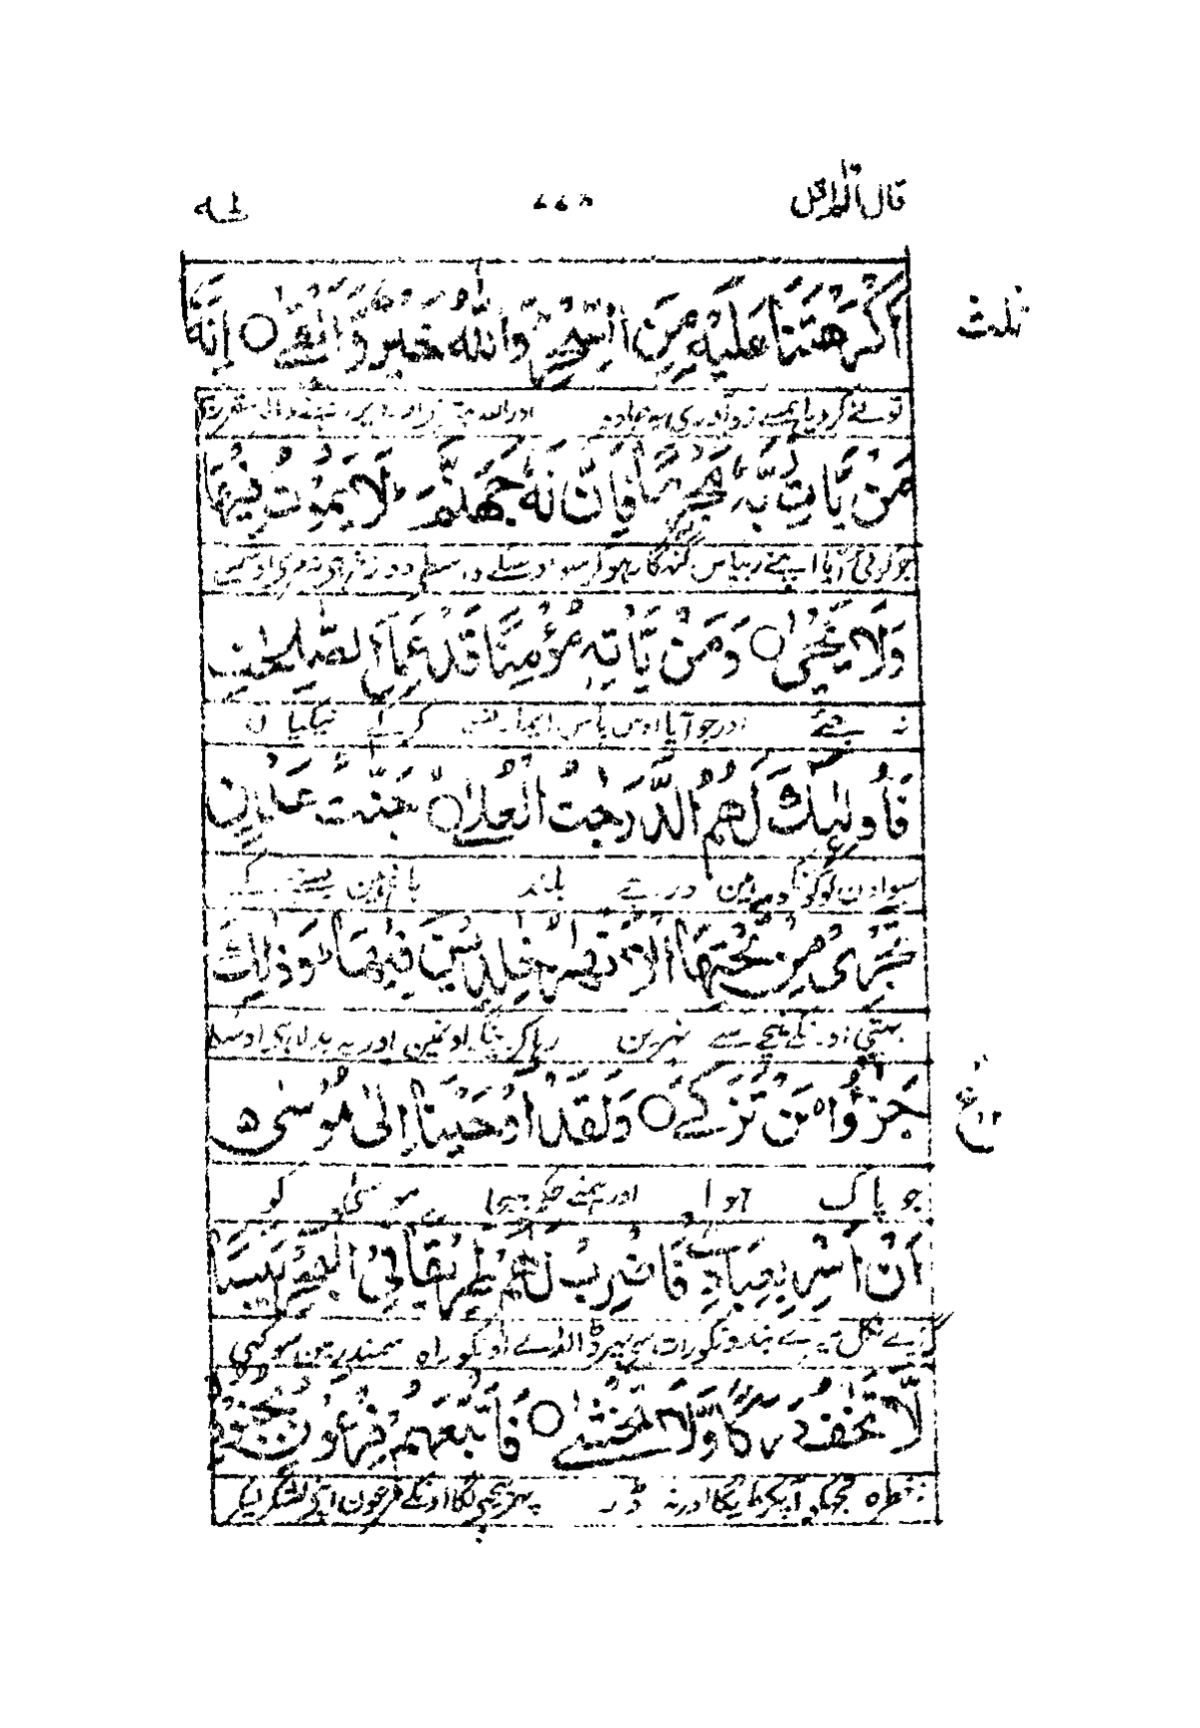 قال الم اقل طه
ثلث
اَكْرَهْتَنَا عَلَيْهِ مِنَ السِّحْرِ وَاللّٰهُ خَيْرٌ وَّاَبْقٰى ○ اِنَّهٗ
تونے کروایا ہمسے زوراوری یہ جادو اور اللہ بہتر ہے اور دیر رہنے والا مقرر
مَنْ يَّاْتِ رَبَّهٗ مُجْرِمًا فَاِنَّ لَهٗ جَهَنَّمَ ؕ لَا يَمُوْتُ فِيْهَا
جو کوئی آیا اپنے رب پاس گنہگار ہوکر سو اوسکے واسطے دوزخ ہی نہ مری اوسمین
وَلَا يَحْيٰى ○ وَمَنْ يَّاْتِهٖ مُؤْمِنًا قَدْ عَمِلَ الصّٰلِحٰتِ
نہ جئے اور جو آیا اوس پاس ایمان کرکے نیکیاں
فَاُولٰٓئِكَ لَهُمُ الدَّرَجٰتُ الْعُلٰى ○ جَنّٰتُ عَدْنٍ
سو اون لوگونکو ہین درجے بلند باغ ہین بسنے کے
تَجْرِىْ مِنْ تَحْتِهَا الْاَنْهٰرُ خٰلِدِيْنَ فِيْهَا ؕ وَذٰلِكَ
بہتی اونکے نیچے سے نہرین رہا کرینگے اونمین اور یہ بدلا ہی اوسکا
جَزٰٓؤُا مَنْ تَزَكّٰى ○ وَلَقَدْ اَوْحَيْنَاۤ اِلٰى مُوْسٰۤى
ع ۱۲
جو پاک ہوا اور ہمنے حکم بھیجا موسیٰ کو
اَنْ اَسْرِ بِعِبَادِىْ فَاضْرِبْ لَهُمْ طَرِيْقًا فِى الْبَحْرِ يَبَسًا
کہ لے نکل میرے بندونکو رات سے پھر ڈالدے اونکو راہ سمندر مین سوکھی
لَّا تَخٰفُ دَرَكًا وَّلَا تَخْشٰى ○ فَاَتْبَعَهُمْ فِرْعَوْنُ بِجُنُوْدِهٖ
نہ خطرہ تجھکو آپکڑنیکا اور نہ ڈر پھر پیچھے لگا اونکے فرعون اپنے لشکر لیکر